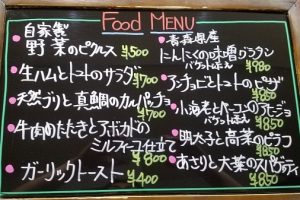 Food MENU
自家製
野菜のピクルス ¥500
生ハムとトマトのサラダ ¥700
天然ブリと真鯛のカルパッチョ ¥700
牛肉のたたきとアボカドの
ミルフィーユ仕立て ¥800
ガーリックトースト ¥400
青森県産
にんにくの味噌グラタン
バゲット添え ¥980
アンチョビとトマトのピザ ¥850
小海老とベーコンのアヒージョ
バゲット添え ¥850
明太子と高菜のピラフ ¥850
あさりと大葉のスパゲティ ¥850